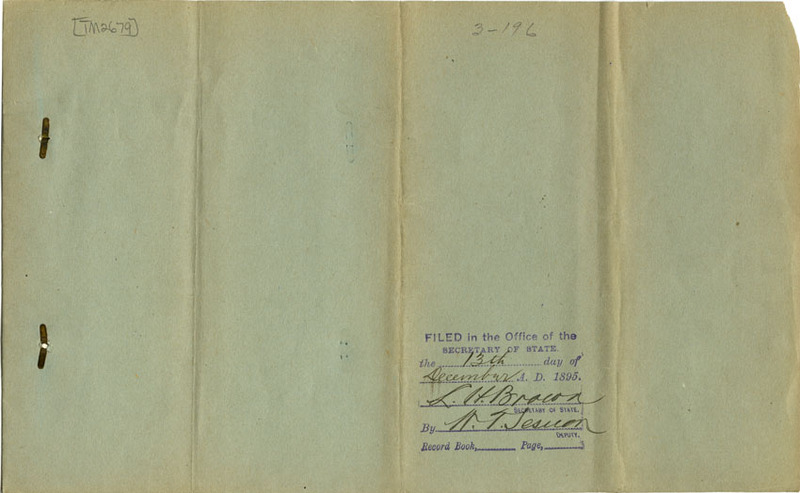 [TM2679]
3-196
FILED in the Office of the
SECRETARY OF STATE.
the 13th day of
December A. D. 1895.
L. H. Brown
SECRETARY OF STATE.
By W. T.
DEPUTY.
Record Book, Page,